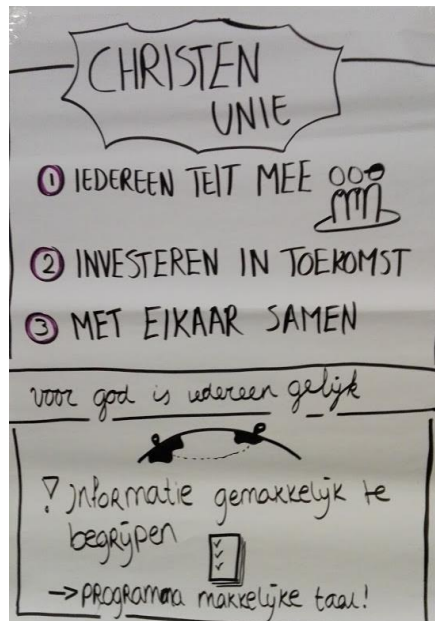 CHRISTEN
UNIE
1 IEDEREEN TEIT MEE
2 INVESTEREN IN TOEKOMST
3 MET EIKAAR SAMEN
voor god is iedereen gelijk
! Informatie gemakkelijk te
begrijpen
→ PROGRAMMA makkelijke taal!